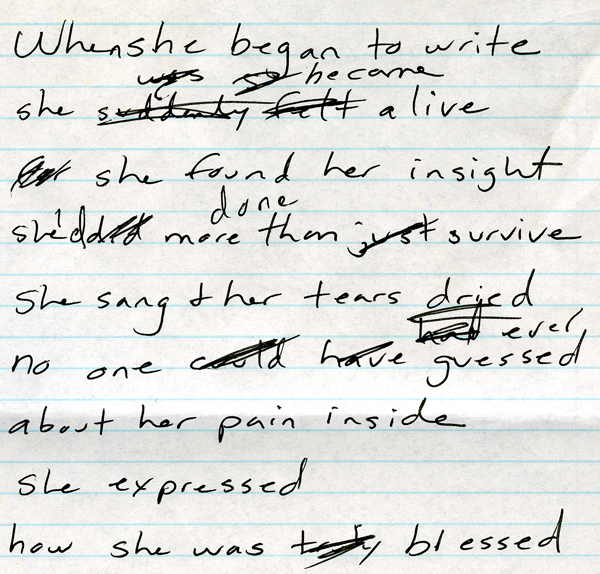 When she began to write
was so became
she suddenly felt alive
she found her insight
done
she'd did more than just survive
She sang & her tears dried
had ever
no one could have guessed
about her pain inside
She expressed
how she was truly blessed